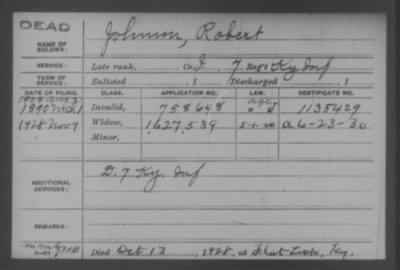 DEAD
NAME OF SOLDIER: Johnson, Robert
SERVICE: Late rank, Co. I, 7 Reg't Ky Inf
TERM OF SERVICE: Enlisted , 1 Discharged , 1
DATE OF FILING. CLASS. APPLICATION NO. LAW. CERTIFICATE NO.
1890 Invalid, 758648 1135429
1928 Nov 9 Widow, 1627539 5-1-20 a 6-23-30
Minor,
ADDITIONAL SERVICES: D. 7 Ky. Inf
REMARKS:
Died Oct 13, 1928, at Flat Lick, Ky.